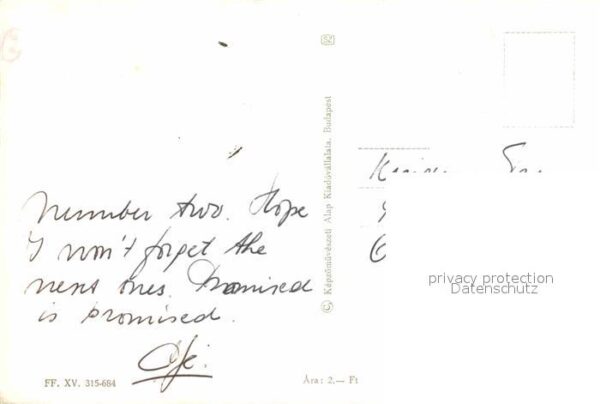 Number two. Hope
I won't forget the
next ones. Promised
is promised.
FF. XV. 315-684
Ára: 2.— Ft
© Képzőművészeti Alap Kiadóvállalata, Budapest
privacy protection
Datenschutz